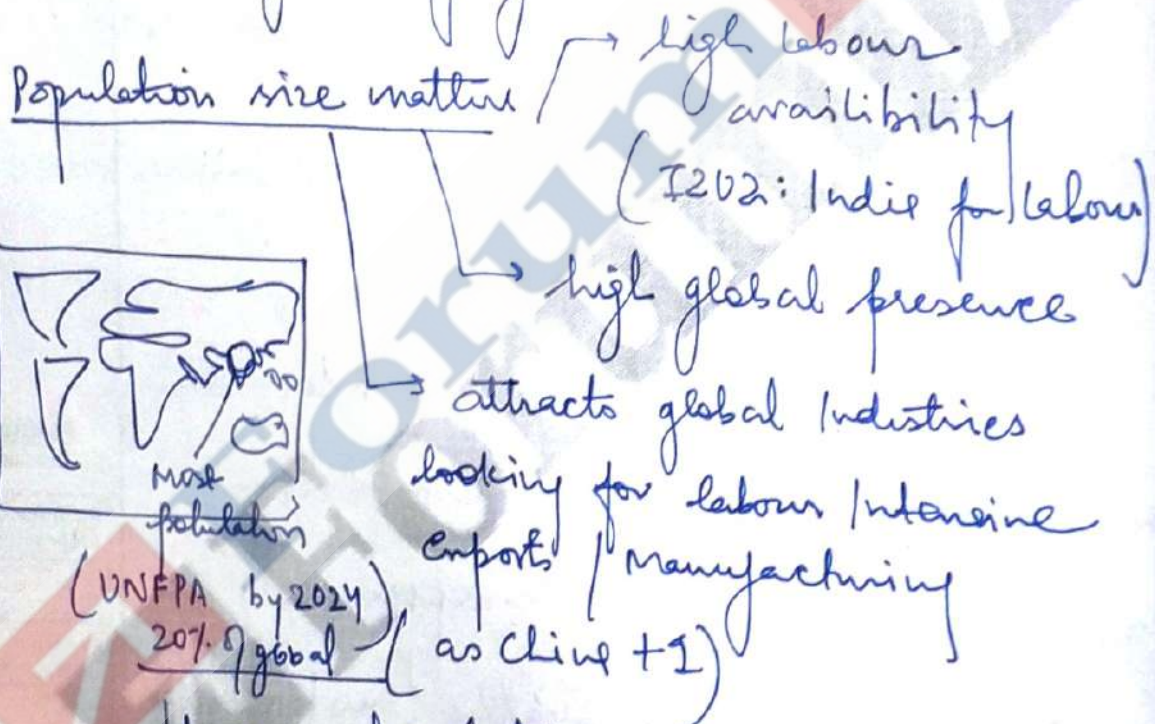 Population size matters
high labour
availibility
(I2U2: India for labour)
high global presence
attracts global Industries
looking for labour Intensive
Exports / Manufacturing
(as China +1)
Most
population
(UNFPA by 2024
20% of global)
Forum